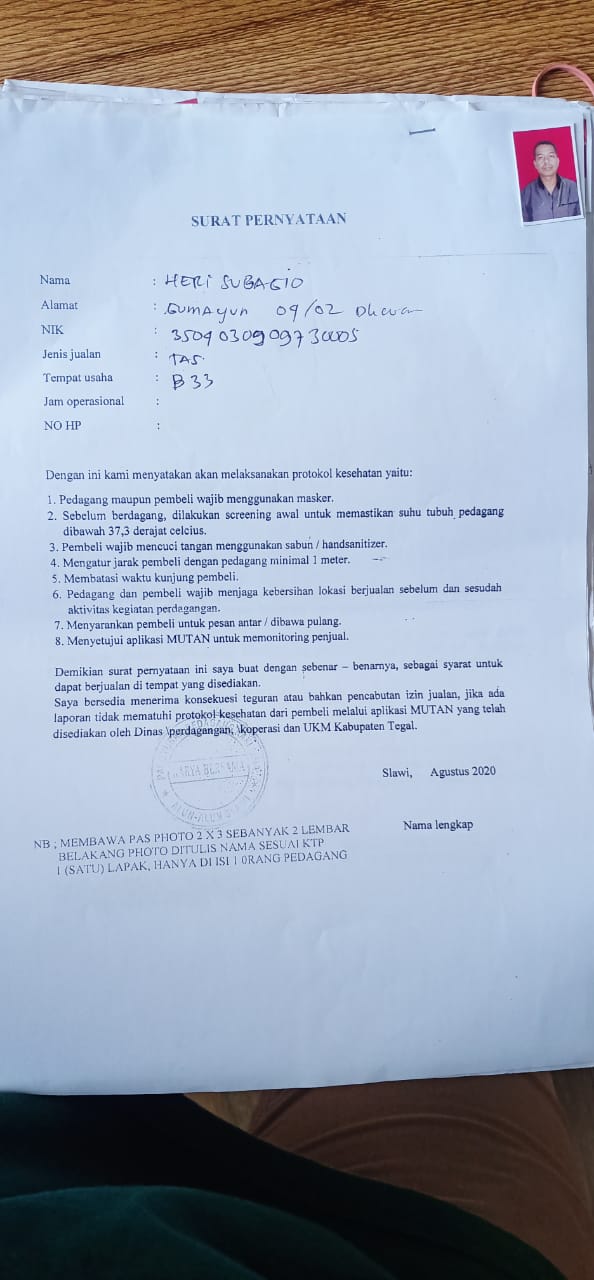 SURAT PERNYATAAN
Nama : HERI SUBAGIO
Alamat : GUMAYUN 09/02
NIK : 3509030909730005
Jenis jualan : TAS.
Tempat usaha : B 33
Jam operasional :
NO HP :
Dengan ini kami menyatakan akan melaksanakan protokol kesehatan yaitu:
1. Pedagang maupun pembeli wajib menggunakan masker.
2. Sebelum berdagang, dilakukan screening awal untuk memastikan suhu tubuh pedagang
dibawah 37,3 derajat celcius.
3. Pembeli wajib mencuci tangan menggunakan sabun / handsanitizer.
4. Mengatur jarak pembeli dengan pedagang minimal 1 meter.
5. Membatasi waktu kunjung pembeli.
6. Pedagang dan pembeli wajib menjaga kebersihan lokasi berjualan sebelum dan sesudah
aktivitas kegiatan perdagangan.
7. Menyarankan pembeli untuk pesan antar / dibawa pulang.
8. Menyetujui aplikasi MUTAN untuk memonitoring penjual.
Demikian surat pernyataan ini saya buat dengan sebenar – benarnya, sebagai syarat untuk
dapat berjualan di tempat yang disediakan.
Saya bersedia menerima konsekuesi teguran atau bahkan pencabutan izin jualan, jika ada
laporan tidak mematuhi protokol kesehatan dari pembeli melalui aplikasi MUTAN yang telah
disediakan oleh Dinas \perdagangan, \koperasi dan UKM Kabupaten Tegal.
KARYA BERSAMA
Slawi, Agustus 2020
Nama lengkap
NB ; MEMBAWA PAS PHOTO 2 X 3 SEBANYAK 2 LEMBAR
BELAKANG PHOTO DITULIS NAMA SESUAI KTP
1 (SATU) LAPAK, HANYA DI ISI 1 0RANG PEDAGANG